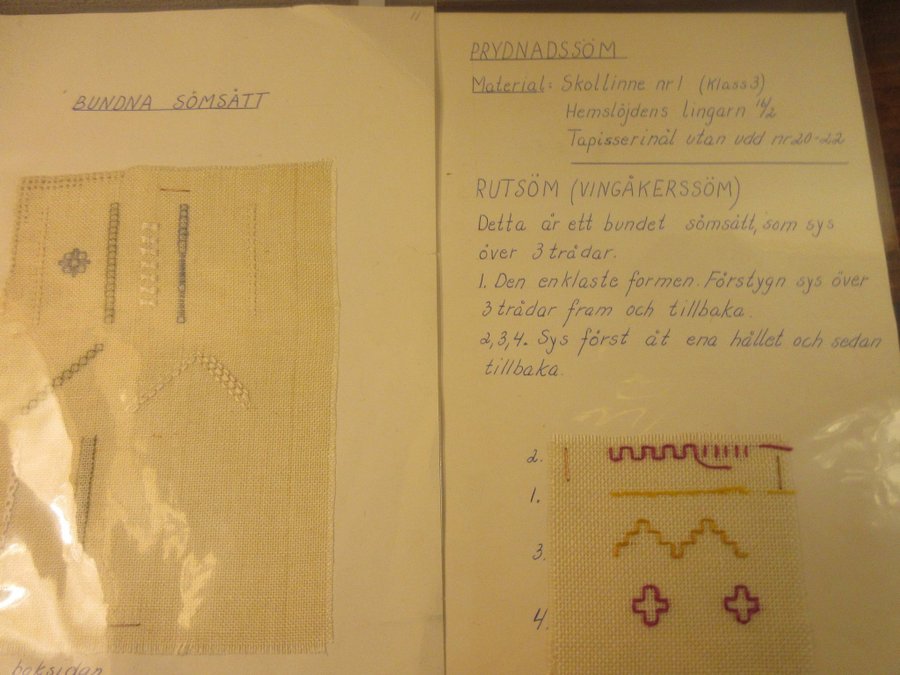 11
BUNDNA SÖMSÄTT
baksidan
PRYDNADSSÖM
Material: Skollinne nr 1 (Klass 3)
Hemslöjdens lingarn 16/2
Tapisserinål utan udd nr 20-22
RUTSÖM (VINGÅKERSSÖM)
Detta är ett bundet sömsätt, som sys
över 3 trådar.
1. Den enklaste formen. Förstygn sys över
3 trådar fram och tillbaka.
2,3,4. Sys först åt ena hållet och sedan
tillbaka.
2.
1.
3.
4.